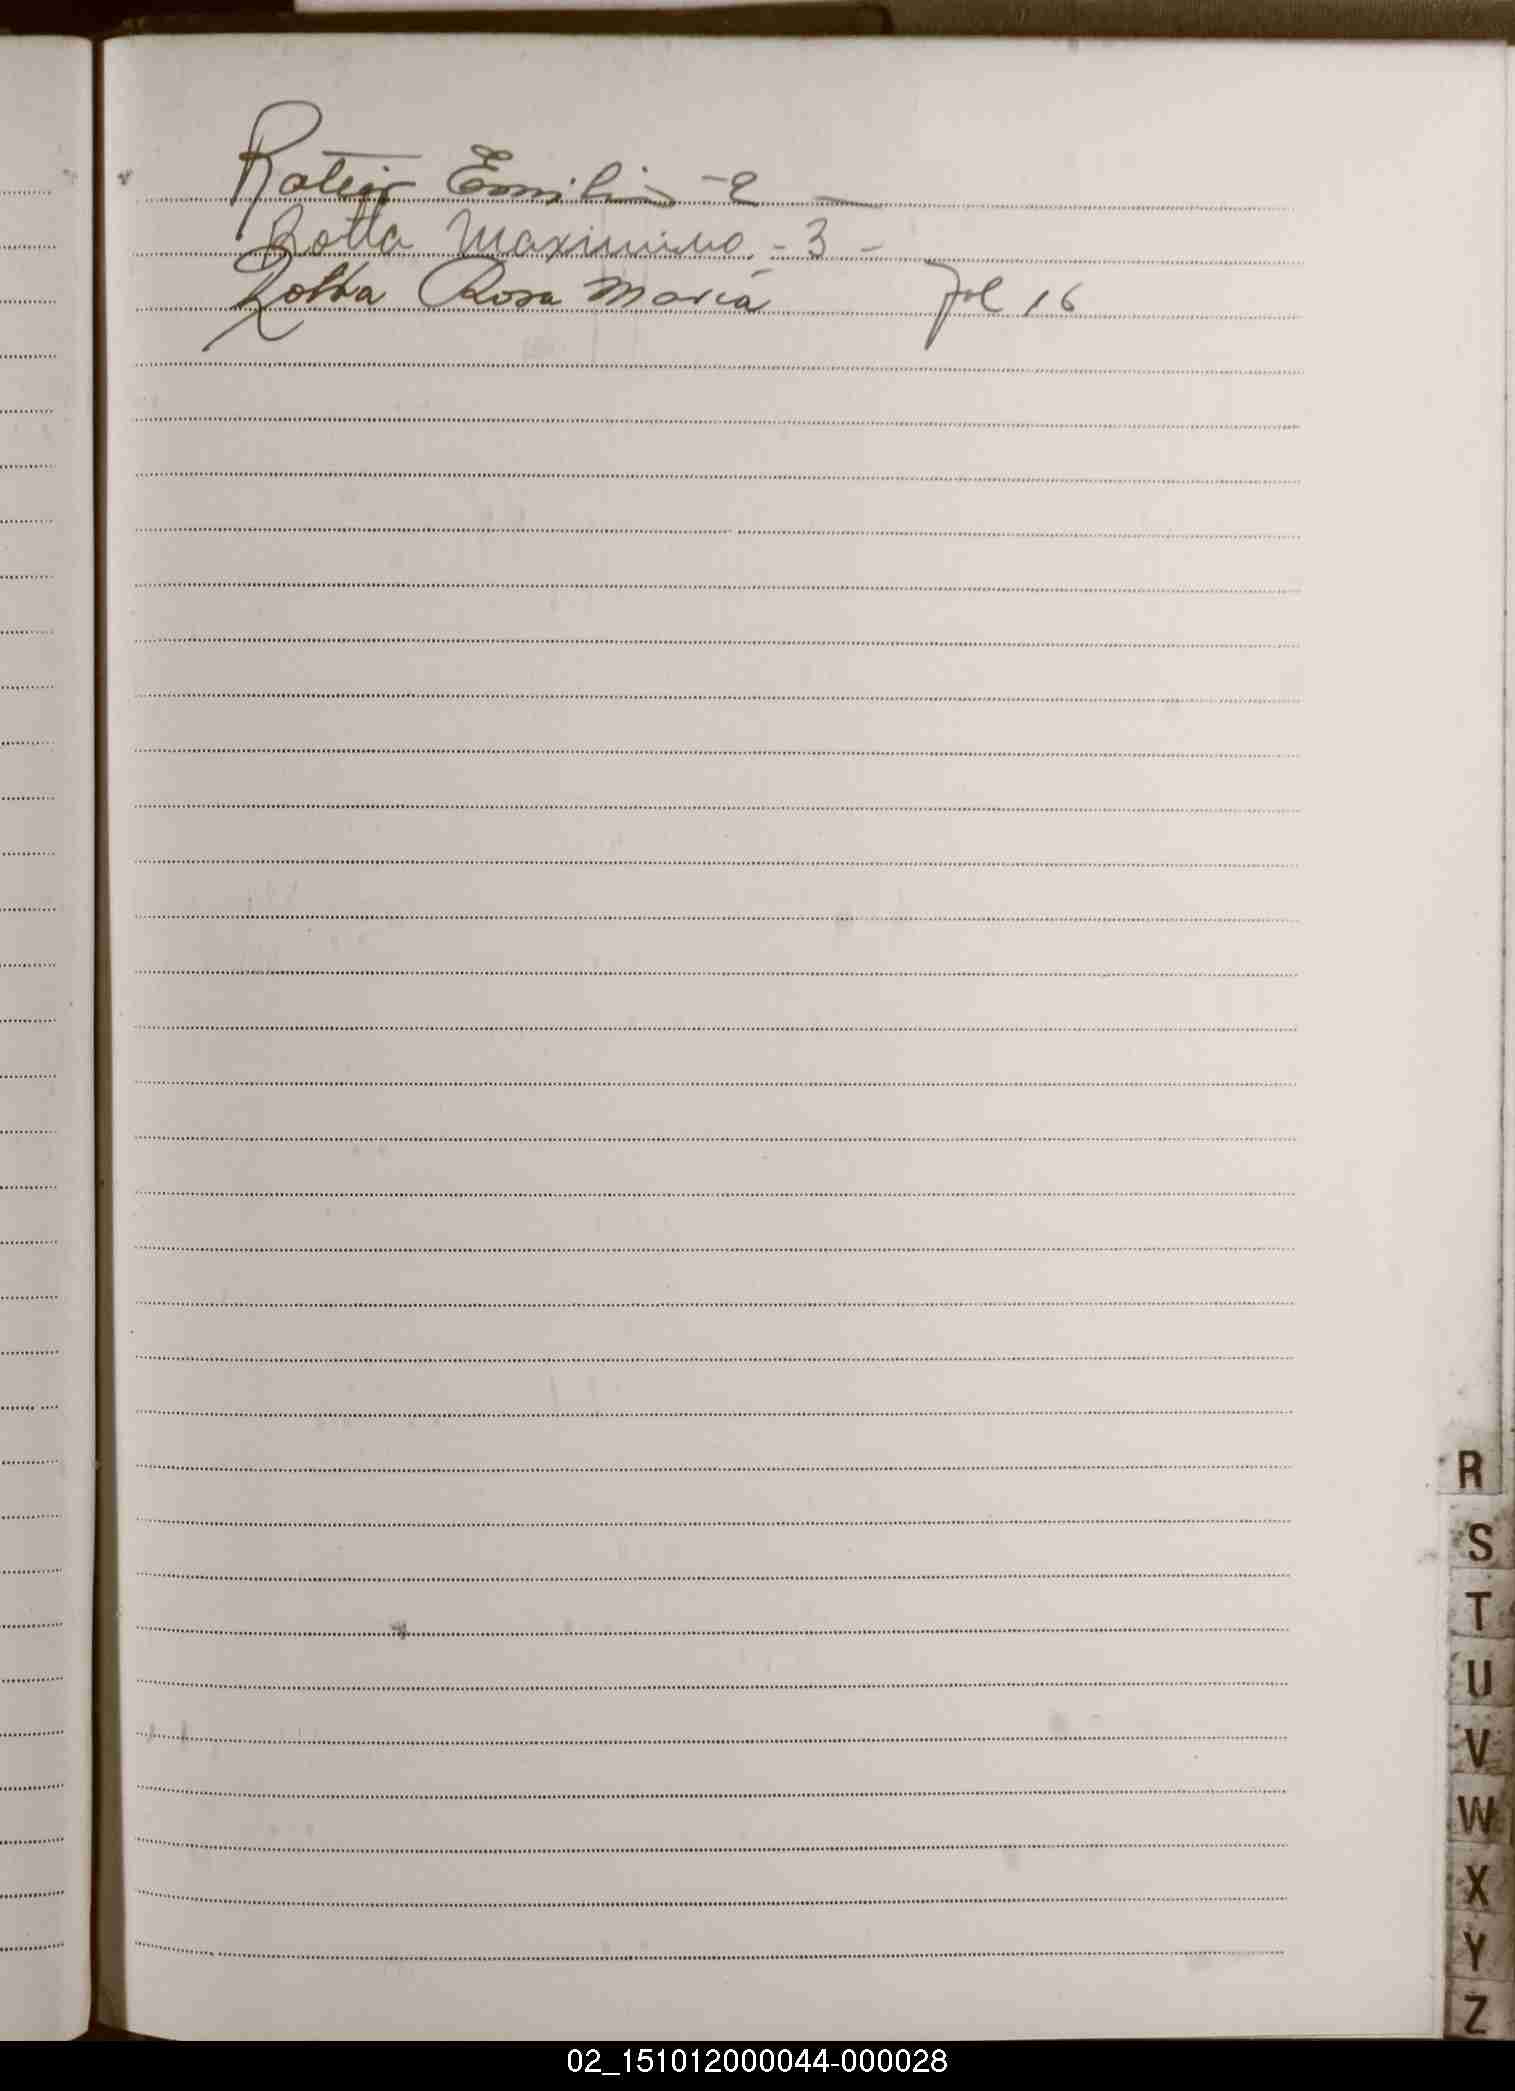 Ratier Emilio - 2 —
Rotta Maximimo. - 3 -
Rotta Rosa María Fol 16
R
S
T
U
V
W
X
Y
Z
02_151012000044-000028